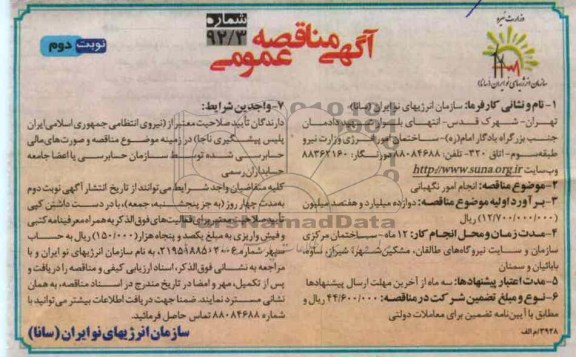 وزارت نیرو
سازمان انرژیهای نو ایران (سانا)
آگهی مناقصه عمومی
شماره ۹۲/۳
نوبت دوم
۱- نام و نشانی کارفرما: سازمان انرژیهای نو ایران (سانا)-
تهران- شهرک قدس- انتهای بلوار شهید دادمان
جنب بزرگراه یادگار امام(ره)- ساختمان امور انرژی وزارت نیرو
طبقه سوم- اتاق ۳۲۰- تلفن: ۸۸۰۸۴۶۸۸ دورنگار: ۸۸۳۶۲۱۶۰
وب‌سایت http://www.suna.org.ir
۲- موضوع مناقصه: انجام امور نگهبانی
۳- برآورد اولیه موضوع مناقصه: دوازده میلیارد و هفتصد میلیون
(۱۲/۷۰۰/۰۰۰/۰۰۰) ریال
۴- مدت زمان و محل انجام کار: ۱۲ ماه- ساختمان مرکزی
سازمان و سایت نیروگاه‌های طالقان، مشکین‌شهر، شیراز، ساوه،
بابائیان و سمنان
۵- مدت اعتبار پیشنهادها: سه ماه از آخرین مهلت ارسال پیشنهادها
۶- نوع و مبلغ تضمین شرکت در مناقصه: ۴۴/۶۰۰/۰۰۰ ریال و
مطابق با آیین‌نامه تضمین برای معاملات دولتی
۳۹۲۸/م الف
۷- واجدین شرایط:
دارندگان تأیید صلاحیت معتبر از (نیروی انتظامی جمهوری اسلامی ایران
پلیس پیشگیری ناجا) در زمینه موضوع مناقصه و صورت‌های مالی
حسابرسی شده توسط سازمان حسابرسی یا اعضا جامعه
حسابداران رسمی
کلیه متقاضیان واجد شرایط می‌توانند از تاریخ انتشار آگهی نوبت دوم
به‌مدت چهار روز (به جز پنجشنبه، جمعه)، با در دست داشتن کپی
تأیید صلاحیت معتبر برای فعالیت‌های فوق‌الذکر به همراه معرفینامه کتبی
و فیش واریزی به مبلغ یکصد و پنجاه هزار (۱۵۰/۰۰۰) ریال به حساب
به نام سازمان انرژیهای نو ایران و با
مراجعه به نشانی فوق‌الذکر، اسناد ارزیابی کیفی و مناقصه را دریافت و
پس از تکمیل، مهر و امضا در تاریخ مندرج در اسناد مناقصه، به همان
نشانی مسترد نمایند. ضمنا جهت دریافت اطلاعات بیشتر می‌توانید با
شماره ۸۸۰۸۴۶۸۸ تماس حاصل فرمائید.
سازمان انرژیهای نو ایران (سانا)
ParsNamadData